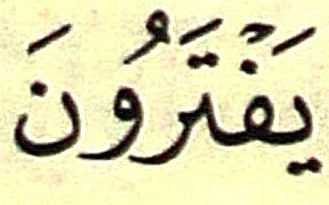 يَفْتَرُونَ